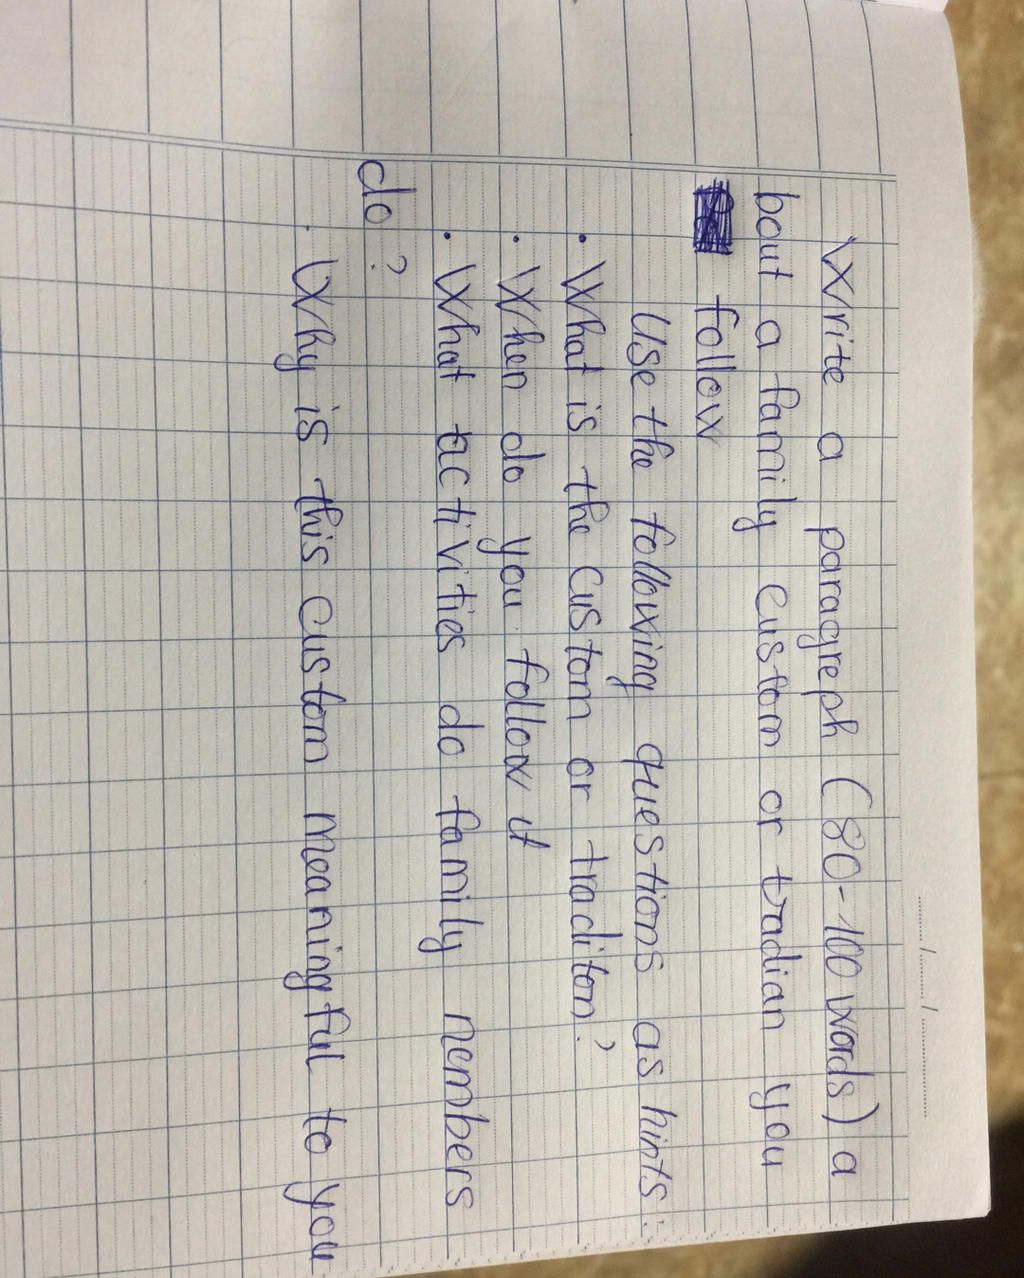 Write a paragreph (80-100 words) a
bout a family custom or tradian you
follow
Use the following questions as hints:
• What is the custom or traditon?
• When do you follow it
• What activities do family nembers
do?
. Why is this custom meaningful to you